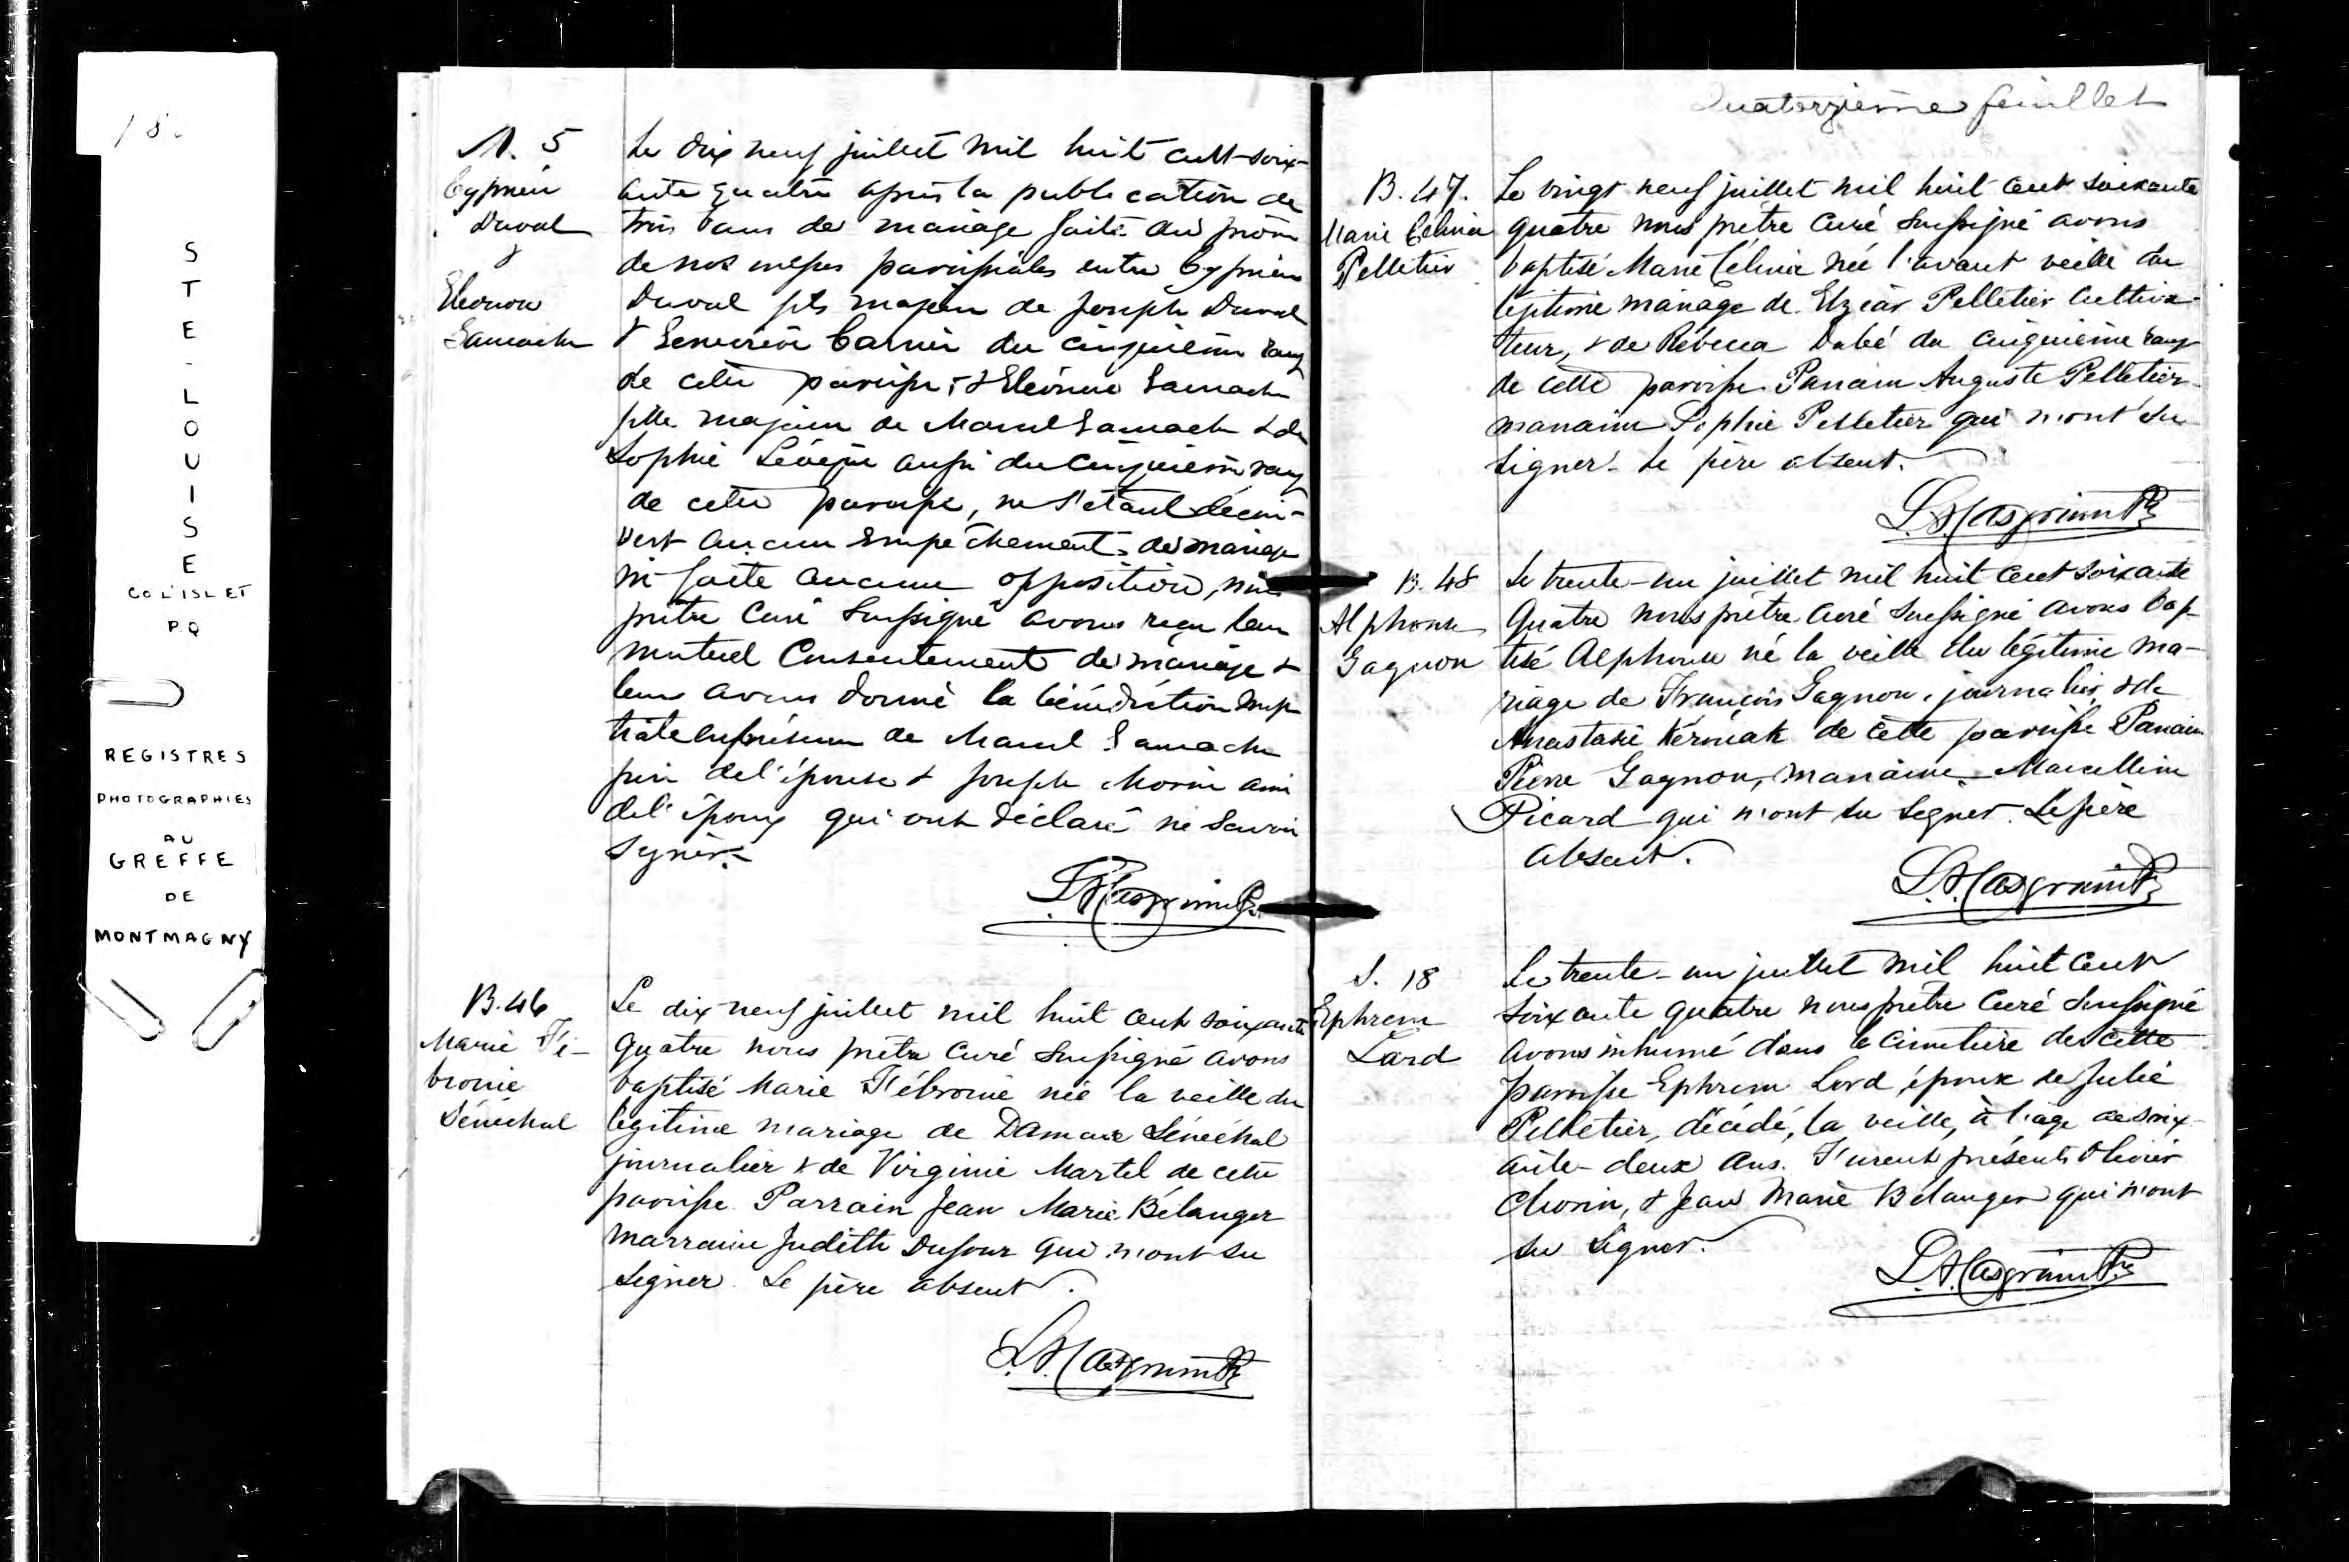 18
STE-LOUISE
CO L'ISLET
P Q
REGISTRES
PHOTOGRAPHIES
AU
GREFFE
DE
MONTMAGNY
M. 5
Cyprien
Duval
&
Eleonore
Gamache
Le dix neuf juillet mil huit cent soix-
ante quatre après la publication de
trois bans de mariage faite au prône
de nos messes paroissiales entre Cyprien
Duval fils majeur de Joseph Duval
& Genevieve Caron du cinquième rang
de cette paroisse, & Eléonore Gamache
fille majeure de Marcel Gamache & de
Sophie Lévêque aussi du cinquième rang
de cette paroisse, ne s'étant décou-
vert aucun empêchement de mariage
ni faite aucune opposition, nous
prêtre Curé Soussigné avons reçu leur
mutuel Consentement de mariage &
leur avons donné la bénédiction nup
tiale en présence de Marcel Gamache
père de l'épouse & Joseph Morin ami
de l'époux qui ont déclaré ne Savoir
Signer.
L.A. Casgrain Ptre
B. 46
Marie Fé-
bronie
Sénéchal
Le dix neuf juillet mil huit cent soixante
quatre nous prêtre Curé Soussigné avons
baptisé Marie Fébronie née la veille du
légitime mariage de Damase Sénéchal
journalier & de Virginie Martel de cette
paroisse. Parrain Jean Marie Bélanger
Marraine Judith Dufour qui n'ont su
Signer. Le père absent.
L.A. Casgrain Ptre
Quatorzième feuillet
B. 47.
Marie Celina
Pelletier
Le vingt neuf juillet mil huit cent soixante
quatre nous prêtre Curé Soussigné avons
baptisé Marie Célina née l'avant veille du
légitime mariage de Elzéar Pelletier Cultiva-
teur, & de Rébecca Dubé du cinquième rang
de cette paroisse. Parrain Auguste Pelletier
marraine Sophie Pelletier qui n'ont su
Signer. Le père absent.
L.A. Casgrain Ptre
B. 48
Alphonse
Gagnon
Le trente-un juillet mil huit cent soixante
quatre nous prêtre Curé Soussigné avons bap-
tisé Alphonse né la veille du légitime ma-
riage de François Gagnon, journalier, & de
Anastasie Kérouak de cette paroisse Parrain
Pierre Gagnon, marraine Marcelline
Picard qui n'ont su Signer. Le père
absent.
L.A. Casgrain Ptre
S. 18
Ephrem
Lord
Le trente-un juillet mil huit cent
soixante quatre nous prêtre Curé Soussigné
avons inhumé dans le cimetière de cette
paroisse Ephrem Lord, époux de Julie
Pelletier, décédé, la veille, à l'âge de soix-
ante-deux ans. Furent présents Olivier
Morin, & Jean Marie Bélanger qui n'ont
su Signer.
L.A. Casgrain Ptre